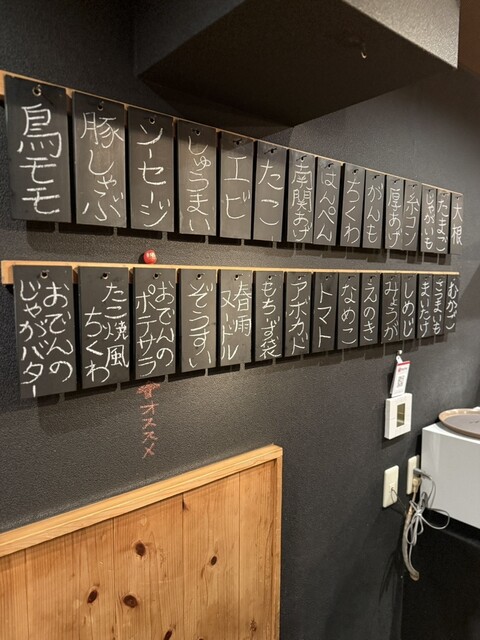 大根
たまご
じゃがいも
糸コン
厚あげ
がんも
ちくわ
はんぺん
南関あげ
たこ
エビ
しゅうまい
ソーセージ
豚しゃぶ
鳥モモ
むかご
さつまいも
まいたけ
しめじ
みょうが
えのき
なめこ
トマト
アボカド
もちず袋
春雨
ヌードル
ぞうすい
おでんの
ポテサラ
たこ焼風
ちくわ
おでんの
じゃがバター
オススメ